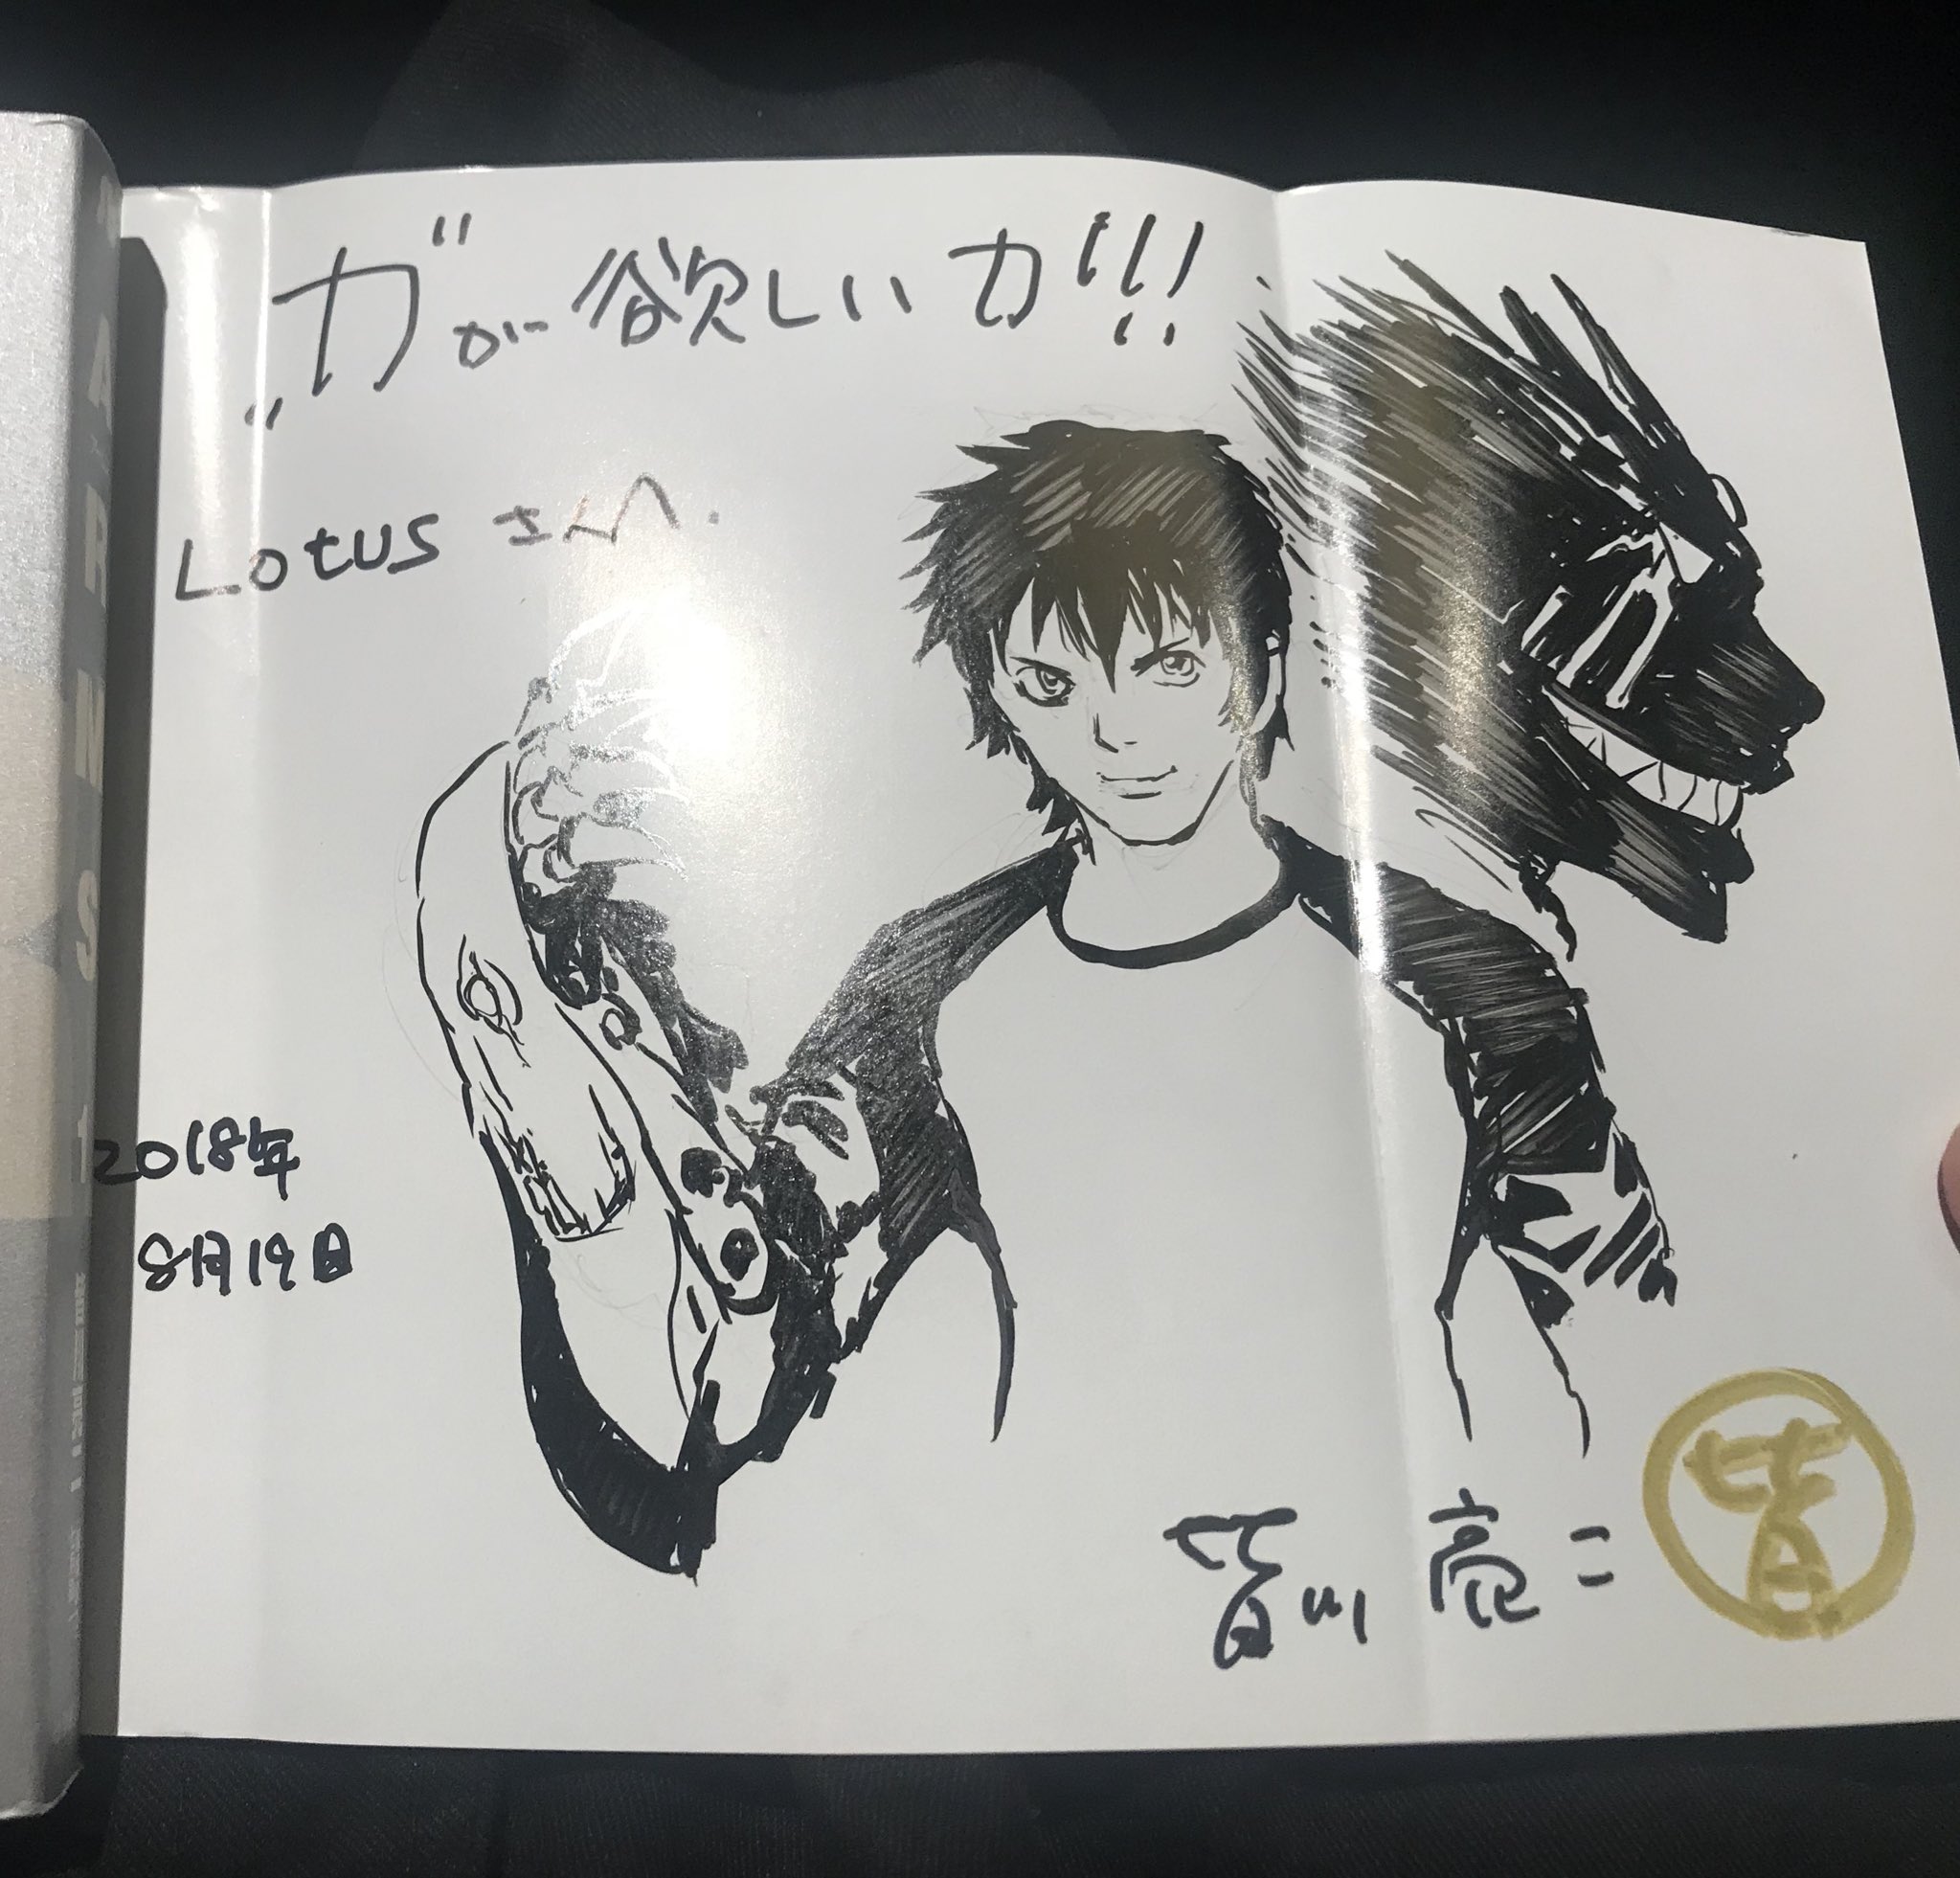 "力が欲しいカ"!!!
Lotus さん.
2018年
8月19日
皆川 亮二
皆
ARMS 1